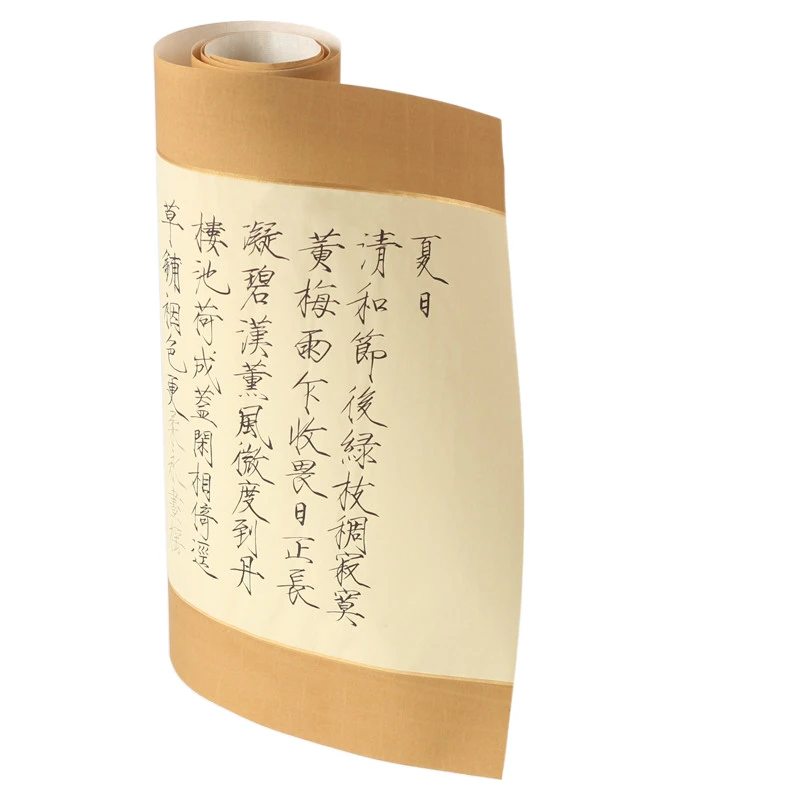 夏日
清和節後綠枝稠寂寞
黃梅雨乍收畏日正長
凝碧漢薰風微度到丹
樓池荷成蓋閑相倚逕
草鋪裀色更柔永晝